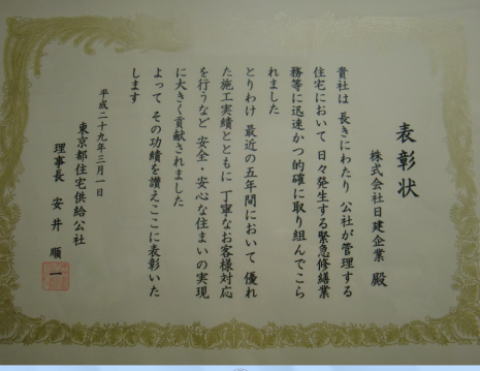 表彰状
株式会社日建企業 殿
貴社は 長きにわたり 公社が管理する
住宅において 日々発生する緊急修繕業
務等に迅速かつ的確に取り組んでこら
れました
とりわけ 最近の五年間において 優れ
た施工実績とともに 丁寧なお客様対応
を行うなど 安全・安心な住まいの実現
に大きく貢献されました
よって その功績を讃えここに表彰いた
します
平成二十九年三月一日
東京都住宅供給公社
理事長 安井 順一